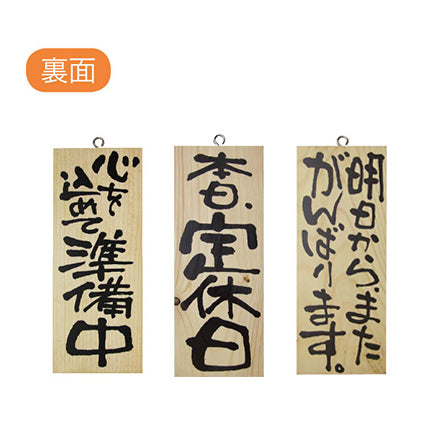 裏面
心を
込めて
準備中
本日、
定休日
明日から、また
がんばります。